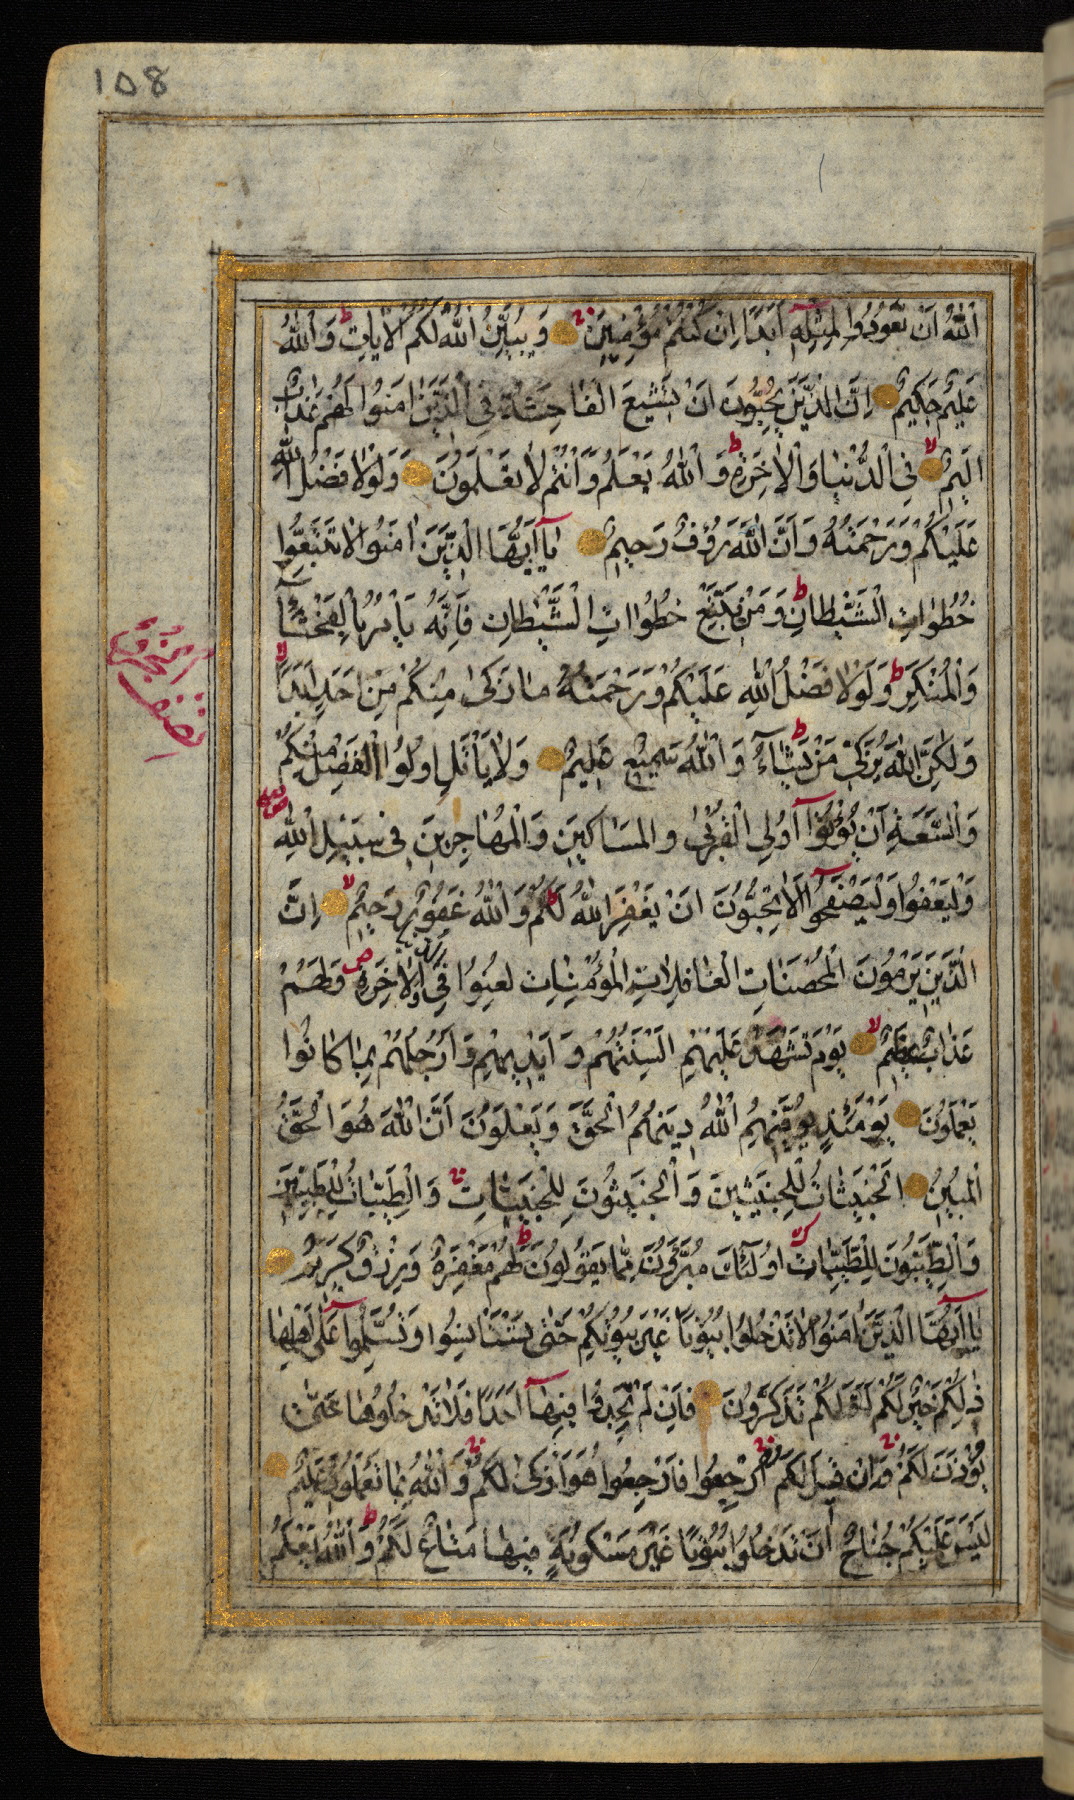 108
اللهُ اَنْ تَعُودُوا لِمِثْلِهِ اَبَدًا اِنْ كُنْتُمْ مُؤْمِنِينَ وَيُبَيِّنُ اللهُ لَكُمُ الْاٰيَاتِ ط وَاللهُ
عَلِيمٌ حَكِيمٌ اِنَّ الَّذِينَ يُحِبُّونَ اَنْ تَشِيعَ الْفَاحِشَةُ فِي الَّذِينَ اٰمَنُوا لَهُمْ عَذَابٌ
اَلِيمٌ لا فِي الدُّنْيَا وَالْاٰخِرَةِ ط وَاللهُ يَعْلَمُ وَاَنْتُمْ لَا تَعْلَمُونَ وَلَوْلَا فَضْلُ اللهِ
عَلَيْكُمْ وَرَحْمَتُهُ وَاَنَّ اللهَ رَؤُفٌ رَحِيمٌ يَا اَيُّهَا الَّذِينَ اٰمَنُوا لَا تَتَّبِعُوا
خُطُوَاتِ الشَّيْطَانِ ط وَمَنْ يَتَّبِعْ خُطُوَاتِ الشَّيْطَانِ فَاِنَّهُ يَاْمُرُ بِالْفَحْشَآءِ
وَالْمُنْكَرِ ط وَلَوْلَا فَضْلُ اللهِ عَلَيْكُمْ وَرَحْمَتُهُ مَا زَكٰى مِنْكُمْ مِنْ اَحَدٍ اَبَدًا لا
وَلٰكِنَّ اللهَ يُزَكِّي مَنْ يَشَآءُ ط وَاللهُ سَمِيعٌ عَلِيمٌ وَلَا يَاْتَلِ اُولُوا الْفَضْلِ مِنْكُمْ
وَالسَّعَةِ اَنْ يُؤْتُوآ اُولِي الْقُرْبٰى وَالْمَسَاكِينَ وَالْمُهَاجِرِينَ فِي سَبِيلِ اللهِ
وَلْيَعْفُوا وَلْيَصْفَحُوآ اَلَا تُحِبُّونَ اَنْ يَغْفِرَ اللهُ لَكُمْ ط وَاللهُ غَفُورٌ رَحِيمٌ لا اِنَّ
الَّذِينَ يَرْمُونَ الْمُحْصَنَاتِ الْغَافِلَاتِ الْمُؤْمِنَاتِ لُعِنُوا فِي الدُّنْيَا وَالْاٰخِرَةِ ص وَلَهُمْ
عَذَابٌ عَظِيمٌ لا يَوْمَ تَشْهَدُ عَلَيْهِمْ اَلْسِنَتُهُمْ وَاَيْدِيهِمْ وَاَرْجُلُهُمْ بِمَا كَانُوا
يَعْمَلُونَ يَوْمَئِذٍ يُوَفِّيهِمُ اللهُ دِينَهُمُ الْحَقَّ وَيَعْلَمُونَ اَنَّ اللهَ هُوَ الْحَقُّ
الْمُبِينُ اَلْخَبِيثَاتُ لِلْخَبِيثِينَ وَالْخَبِيثُونَ لِلْخَبِيثَاتِ وَالطَّيِّبَاتُ لِلطَّيِّبِينَ
وَالطَّيِّبُونَ لِلطَّيِّبَاتِ اُولٰٓئِكَ مُبَرَّؤُنَ مِمَّا يَقُولُونَ ط لَهُمْ مَغْفِرَةٌ وَرِزْقٌ كَرِيمٌ
يَا اَيُّهَا الَّذِينَ اٰمَنُوا لَا تَدْخُلُوا بُيُوتًا غَيْرَ بُيُوتِكُمْ حَتّٰى تَسْتَاْنِسُوا وَتُسَلِّمُوا عَلٰٓى اَهْلِهَا
ذٰلِكُمْ خَيْرٌ لَكُمْ لَعَلَّكُمْ تَذَكَّرُونَ فَاِنْ لَمْ تَجِدُوا فِيهَآ اَحَدًا فَلَا تَدْخُلُوهَا حَتّٰى
يُؤْذَنَ لَكُمْ وَاِنْ قِيلَ لَكُمُ ارْجِعُوا فَارْجِعُوا هُوَ اَزْكٰى لَكُمْ وَاللهُ بِمَا تَعْمَلُونَ عَلِيمٌ
لَيْسَ عَلَيْكُمْ جُنَاحٌ اَنْ تَدْخُلُوا بُيُوتًا غَيْرَ مَسْكُونَةٍ فِيهَا مَتَاعٌ لَكُمْ ط وَاللهُ يَعْلَمُ
نصف الجزء